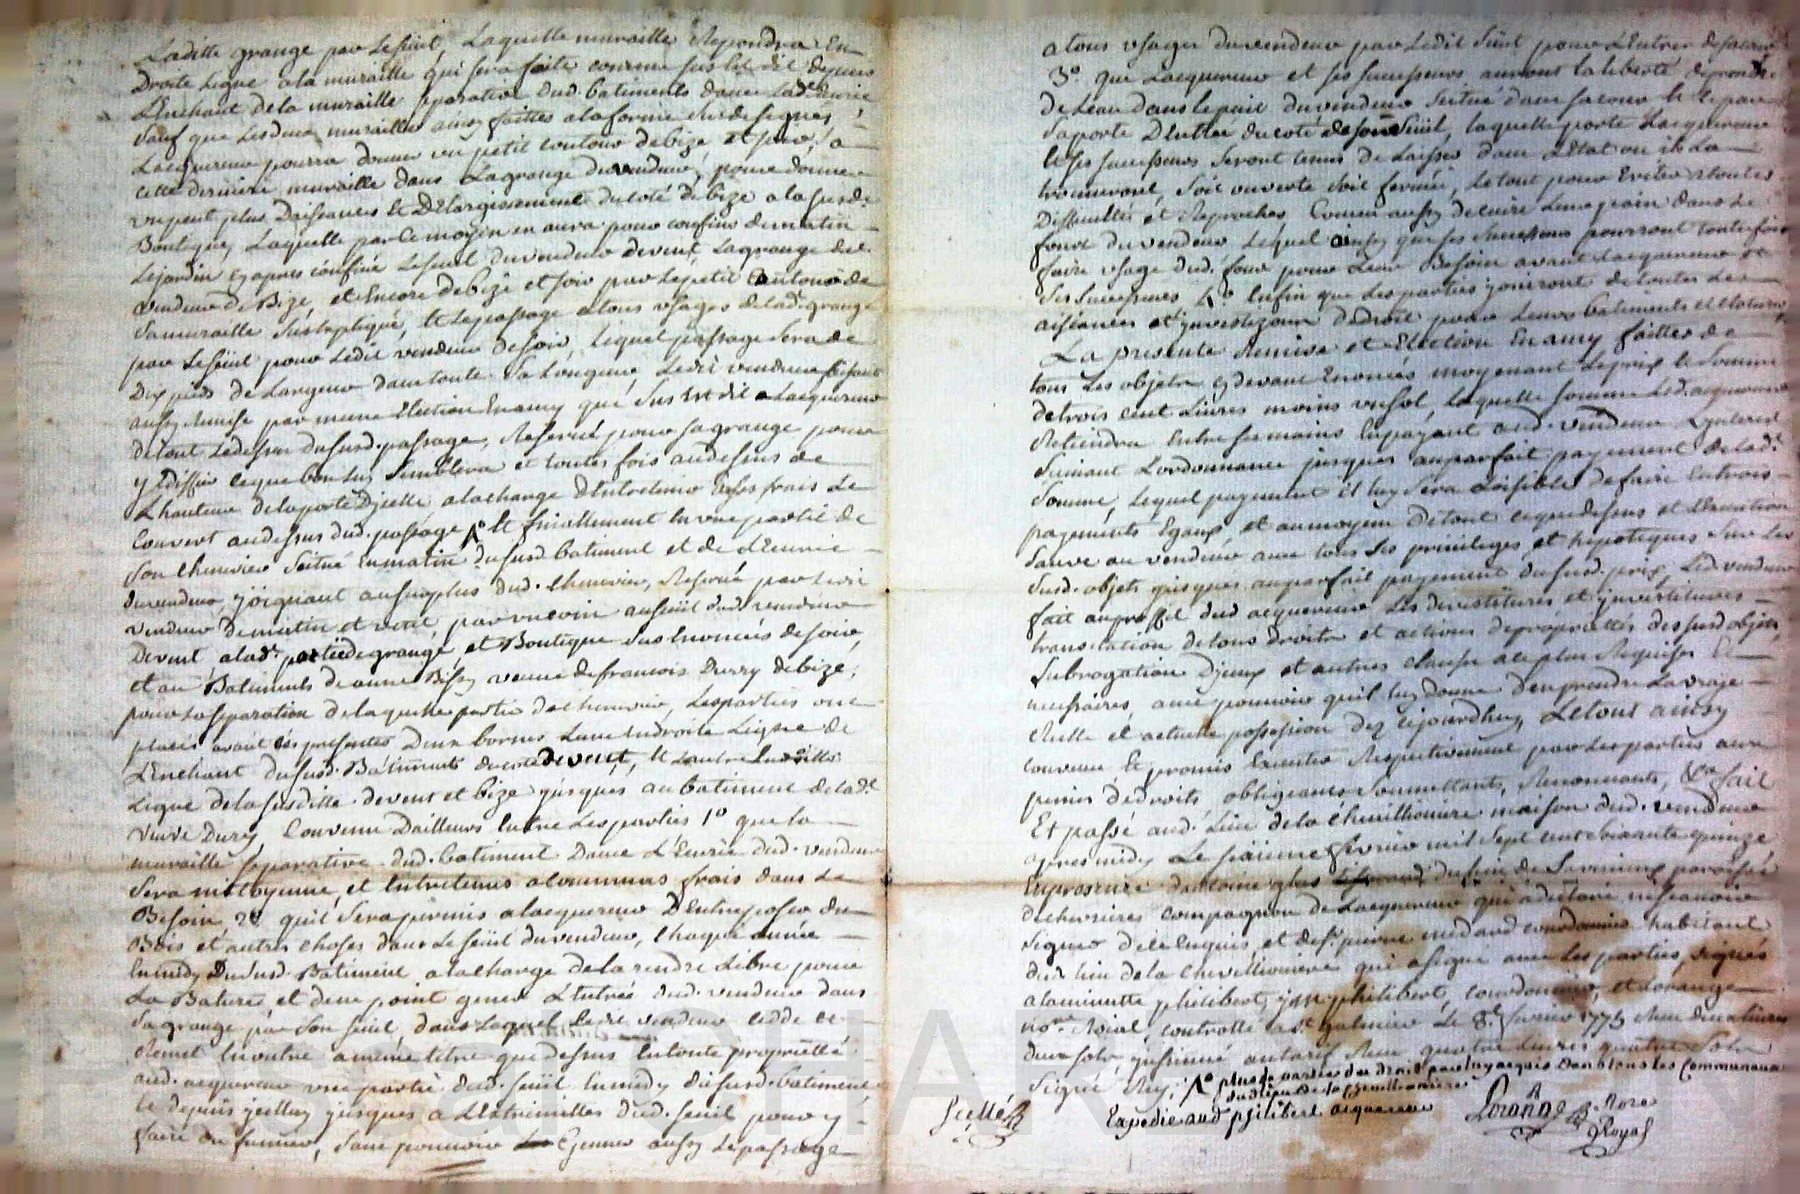 Laditte grange par le süüt, Laquelle muraille Repondra En
Droite Ligne ala muraille qui sera faite comme sus Est dit depuis
L'Enchant dela muraille separative dud. batiments dance Lad.e Ecurie
Sauf que Lesdeux murailles ainsy faittes ala forme cy dessignée,
Lacquereur pourra donner un petit contour debize et soir, a
cette derniere muraille dans Lagrange duvendeur, pour donner
un peut plus Daisances Et D'Elargissement ducoté de bize alasusd.e
Boutique, Laquelle par ce moyen en aura pour confins de matin
Lejardin cy apres confiné Lesuel duvendeur devent, Lagrange dud.
vendeur de Bize, et Encore debize et soir par Lepetit Contour de
Samuraille susExpliqué, Et Lepassage atous usages delad. grange
par Lesüil pour Ledit vendeur desoir, Lequel passage sera de
Dix pieds de Largeur dans toute Sa Longueur, Ledit vendeur faisant
aussy Remise par meme Election En amy que sus Est dit a Lacquereur
detout Ledessus dususd. passage, Reservé pour sa grange pour
y Ediffier ceque bon luy Semblera et toutes fois audessus de
L'hauteur delaporte D'icelle alacharge D'Entretenir Asses frais Le
Couvert audessus dud. passage, Et finallement un une partie de
Son Chenevier Scitué Enmatin dususd. batiment et de L'Ecurie
duvendeur, joignant ausurplus dud. Chenevier, Reservé par Ledit
vendeur dematin et vent, par un coin ausüil dud. vendeur
Devent, alad. partie de grange et Boutique sus Enoncés desoir,
et au Batiments de anne Bissy veuve defrancois Durry debize,
pour Laseparation delaquelle partie dechenevier, Lesparties ont
placés avant Ces presentes Deux bornes Lune Endroite Ligne de
L'Enchant dususd. Batiments ducoté devent, Et Lautre Enditte
Ligne delasusditte devent et bize jusques au batiment delad.e
veuve Durry, Convenu Dailleurs Entre Lesparties 1.o que la
muraille separative dud. batiment Dance L'Ecurie dud. vendeur
Sera mittoyenne, et Entretenue acommuns frais dans Le
Besoin, 2.o quil sera permis alacquereur D'Entreposer du
Bois et autres choses dans Le süil duvendeur, Chaque année
Enmidy Dusud. Batiment alacharge de la rendre Libre pour
La Baturee et deux point gener L'Entrée dud. vendeur dans
Sa grange par Son süil, dans Lequel Ledit vendeur cedde et
Remet Enoutre amême titre que dessus Entoute proprietté
aud. acquereur une partie dud. süil Enmidy dususd. batiment
Et depuis jcelluy jusques a L'Extremittés dud. süil pour y
faire du fumier, sans pouvoir Egener aussy Lepassage
atous usages duvendeur par Ledit Süil pour L'Entrer desacour
3.o que Lacquereur et ses successeurs auront la liberté deprendre
de Leau dans lepuit duvendeur scitué dans sacour et le par
Saporte D'Entrer ducoté deson Süil, laquelle porte Lacquereur
Et ses successeurs seront tenus de Laisser dans L'Etat ou il La
trouveront, soit ouverte soit fermée, Letout pour Eviter atoutes
Difficultés et Reproches Comme aussy de cuire Leur pain dans Le
four du vendeur Lequel ainsy que ses Successeurs pourront toutefois
faire usage dud. four pour Leur Besoin avant Lacquereur et
Ses successeurs, 4.o Enfin que Lesparties jouiront de toutes Les
aisances et jnvestizons D'droit pour Leurs batiments et Clotures,
La presente Remise et Election En amy faittes de
tous Les objets cy devant Enoncés moyenant Leprix et Somme
detrois cent Livres moins un sol, Laquelle somme Led. acquereur
Retiendra Entre ses mains Enpayant aud. vendeur L'interest
Suivant L'ordonnance jusques auparfait payement delad.e
Somme, Lequel payement il luy sera Loisible de faire En trois
payements Egaux et au moyen detout ceque dessus et L'Execution
Sauve au vendeur avec tous Ses privileges et hipoteques sur Les
Susd. objets jusques auparfait payement dususd. prix, Led. vendeur
fait auproffit dud acquereur Les devestitures et jnvestitures
translation detous Droits et actions depropriettés desusd. objets
Subrogation D'jceux et autres clauses ace plus Requises Et
necessaires avec pouvoir quil luy donne D'en prendre Lavraye
Reelle et actuelle possession dez cejourdhuy, Letout ainsy
convenu Et promis Executer Respectivement par Lesparties avec
peines dedroits, obligeants Soumettants, Renonnants, &a fait
Et passé aud. Lieu dela Chevillionniere maison dud. vendeur
apres midy Le sixieme fevrier mil sept cent soixante quinze
Enpresence dantoine du lieu de paroisse
dechevrieres compagnon de Lacquereur qui a declaré nescavoir
signer dece Enquis, et des.r pierre medard courdonnier habitant
dud. Lieu dela Chevillionniere qui a signé avec Les parties, signés
alaminutte philibert, jean philibert, courdonnier, et Lorange
no.re Roial, controllé a s.t galmier Le 8.e fevrier 1775
deux sols, jnsinué autarif Reçu quatre Livres quatre sols
Signé Rey,
plus la partie du droit par luy acquis dans tous les Communaux
dudit lieu de la Chevillionniere
Scellé Expedié aud philibert acquereur Lorange No.re
Royal
Pascal CHAR